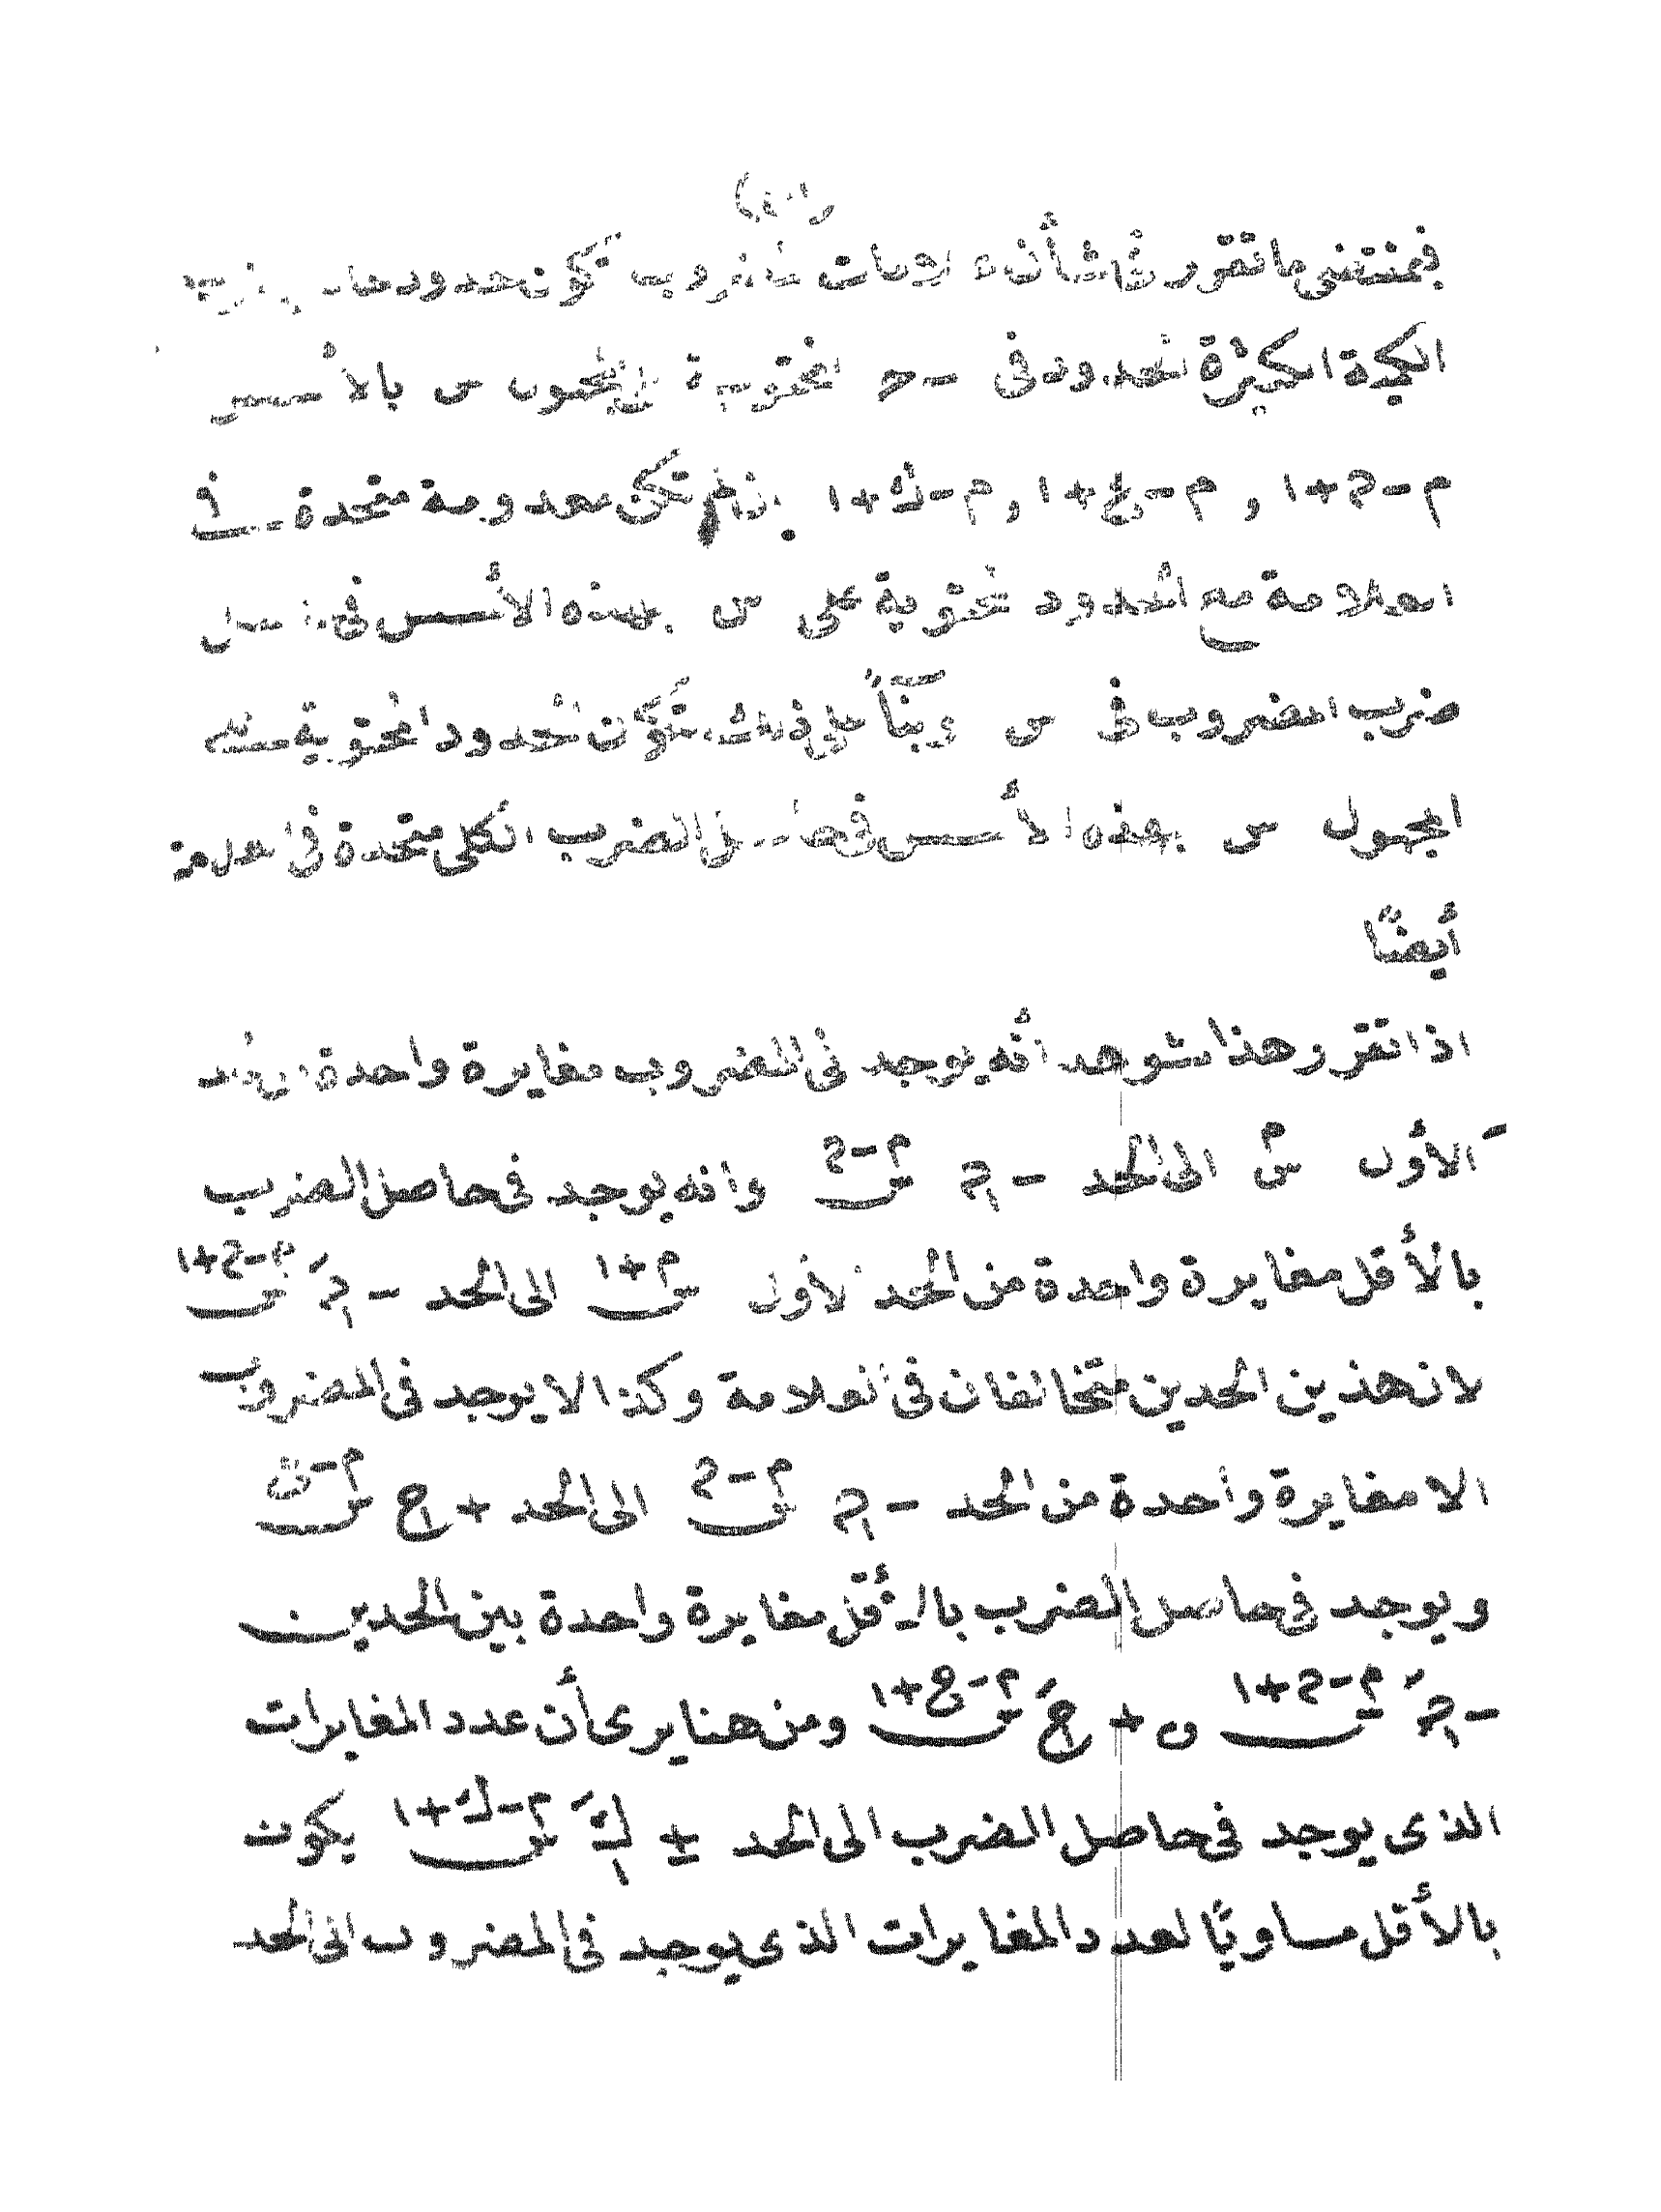 فبمقتضى ما تقرر فى شأن علامات المضروب تكون حدود حاصل ضرب
الكمية الكثيرة الحدود فى - ح المحتوية على المجهول س بالأسس
م-ح+١ , م-ع+١ , م-ك+١ إن لم تكن معدومة متحدة فى
العلامة مع الحدود المحتوية على س بهذه الأسس فى حاصل
ضرب المضروب فى س وبناً على ذلك تكون الحدود المحتوية على
المجهول س بهذه الأسس فى حاصل الضرب الكلى متحدة فى العلامة
أيضًا
اذا تقرر هذا شوهد أنه يوجد فى المضروب مغايرة واحدة من الحد
الأول س^م الى الحد - ح١ س^م-ح وانه يوجد فى حاصل الضرب
بالأقل مغايرة واحدة من الحد الأول س^م+١ الى الحد - حَ١ س^م-ح+١
لان هذين الحدين متخالفان فى العلامة وكذا لا يوجد فى المضروب
الا مغايرة واحدة من الحد - ح١ س^م-ح الى الحد + ع١
ويوجد فى حاصل الضرب بالأقل مغايرة واحدة بين الحدين
- حَ١ س^م-ح+١ و + عَ١ س^م-ع+١ ومن هنا يرى أن عدد المغايرات
الذى يوجد فى حاصل الضرب الى الحد ± كَ١ س^م-ك+١ يكون
بالأقل مساويًا لعدد المغايرات الذى يوجد فى المضروب الى الحد